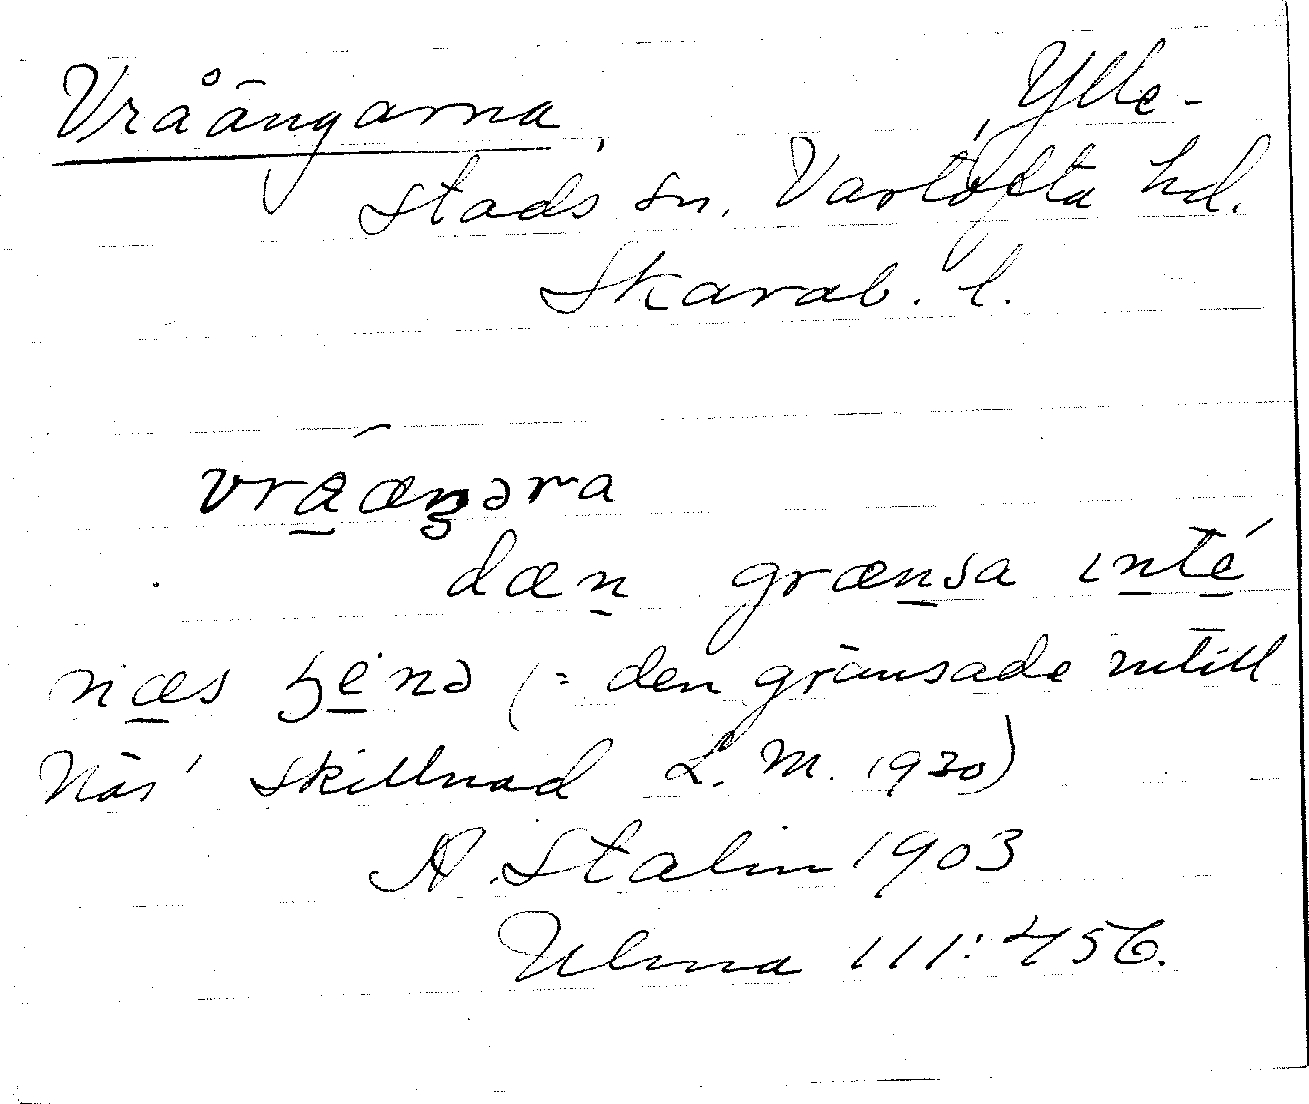 Vråängarna, Ylle-
stads sn. Vartofta hd.
Skarab. l.
vråæŋəra
dæn grænsa inté
næs ʒenə (= den gränsade intill
Näs' skillnad L. M. 1920)
A. Stalin 1903
Ulma 111:456.